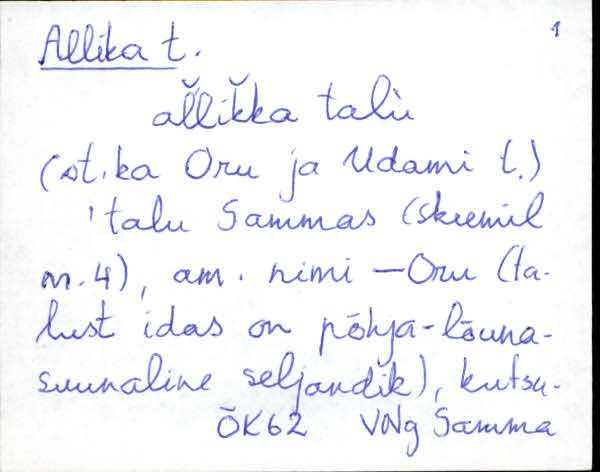 1
Allika t.
al̆lik̆ka talù
(vt. ka Oru ja Udami t.)
'talu Sammas (skeemil
nr. 4), am. nimi – Oru (ta-
lust idas on põhja-lõuna-
suunaline seljandik), kutsu-
ÕK62 VNg Samma